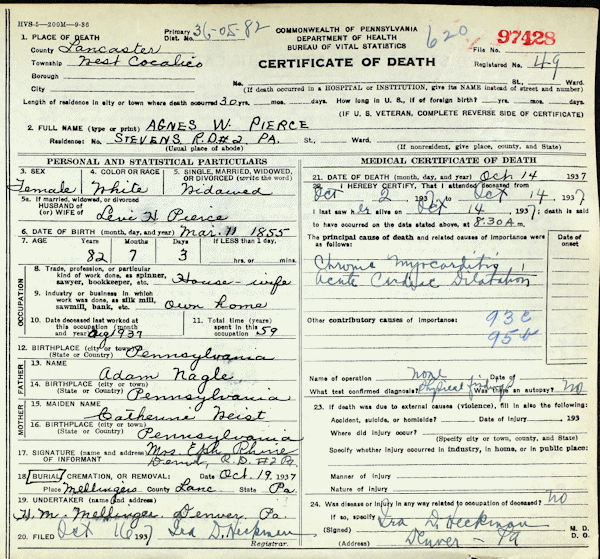 HVS-5—200M—9-36
Primary Dist. No. 36-05-82
COMMONWEALTH OF PENNSYLVANIA
DEPARTMENT OF HEALTH
BUREAU OF VITAL STATISTICS
CERTIFICATE OF DEATH
620
File No. 97428
Registered No. 49
1. PLACE OF DEATH
County Lancaster
Township West Cocalico
Borough
City
No. St., Ward.
(If death occurred in a HOSPITAL or INSTITUTION, give its NAME instead of street and number)
Length of residence in city or town where death occurred 30 yrs. mos. days. How long in U. S., if of foreign birth? yrs. mos. days.
(IF U. S. VETERAN, COMPLETE REVERSE SIDE OF CERTIFICATE)
2. FULL NAME (type or print) AGNES W. PIERCE
Residence: No. STEVENS R.D.#2 PA. St., Ward.
(Usual place of abode) (If nonresident, give place, county, and State)
PERSONAL AND STATISTICAL PARTICULARS
3. SEX
Female
4. COLOR OR RACE
White
5. SINGLE, MARRIED, WIDOWED, OR DIVORCED (write the word)
Widowed
5a. If married, widowed, or divorced
HUSBAND of
(or) WIFE of Levi H Pierce
6. DATE OF BIRTH (month, day, and year) Mar. 11 1855
7. AGE Years Months Days If LESS than 1 day,
82 7 3 hrs. or mins.
OCCUPATION
8. Trade, profession, or particular kind of work done, as spinner, sawyer, bookkeeper, etc. House-wife
9. Industry or business in which work was done, as silk mill, sawmill, bank, etc. Own home
10. Date deceased last worked at this occupation (month and year) Aug 1937
11. Total time (years) spent in this occupation 59
12. BIRTHPLACE (city or town)
(State or Country) Pennsylvania
FATHER
13. NAME Adam Nagle
14. BIRTHPLACE (city or town)
(State or Country) Pennsylvania
MOTHER
15. MAIDEN NAME
Catherine Weist
16. BIRTHPLACE (city or town)
(State or Country) Pennsylvania
17. SIGNATURE (name and address) OF INFORMANT Mrs. Eph.
Denver, R.D.#2 Pa.
18. BURIAL, CREMATION, OR REMOVAL: Date Oct. 19, 1937
Place Mellingers County Lanc. State Pa.
19. UNDERTAKER (name and address)
H. M. Mellinger Denver, Pa.
20. FILED Oct 16 1937 Ira D. Heckman
Registrar.
MEDICAL CERTIFICATE OF DEATH
21. DATE OF DEATH (month, day and year) Oct 14 1937
22. I HEREBY CERTIFY, That I attended deceased
Oct 2 1937 to Oct 14 1937
I last saw her alive on Oct 14, 1937; death is said
to have occurred on the date stated above, at 8:30 A.m.
The principal cause of death and related causes of importance were as follows:
Date of onset
Chronic Myocarditis
Acute Cardiac Dilatation
Other contributory causes of importance:
93c
95b
Name of operation none Date of
What test confirmed diagnosis? Physical findings Was there an autopsy? no
23. If death was due to external causes (violence), fill in also the following:
Accident, suicide, or homicide? Date of injury , 193
Where did injury occur?
(Specify city or town, county, and State)
Specify whether injury occurred in industry, in home, or in public place:
Manner of injury
Nature of injury
24. Was disease or injury in any way related to occupation of deceased? no
If so, specify
(Signed) Ira D. Heckman M. D.
D. O.
24. (Address) Denver - Pa